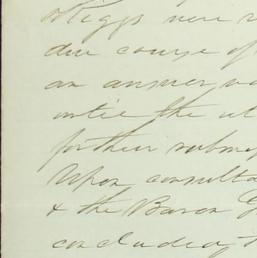 Riggs were
due course of
an answer
until the
further
Upon consulta
& the Baron
concluded